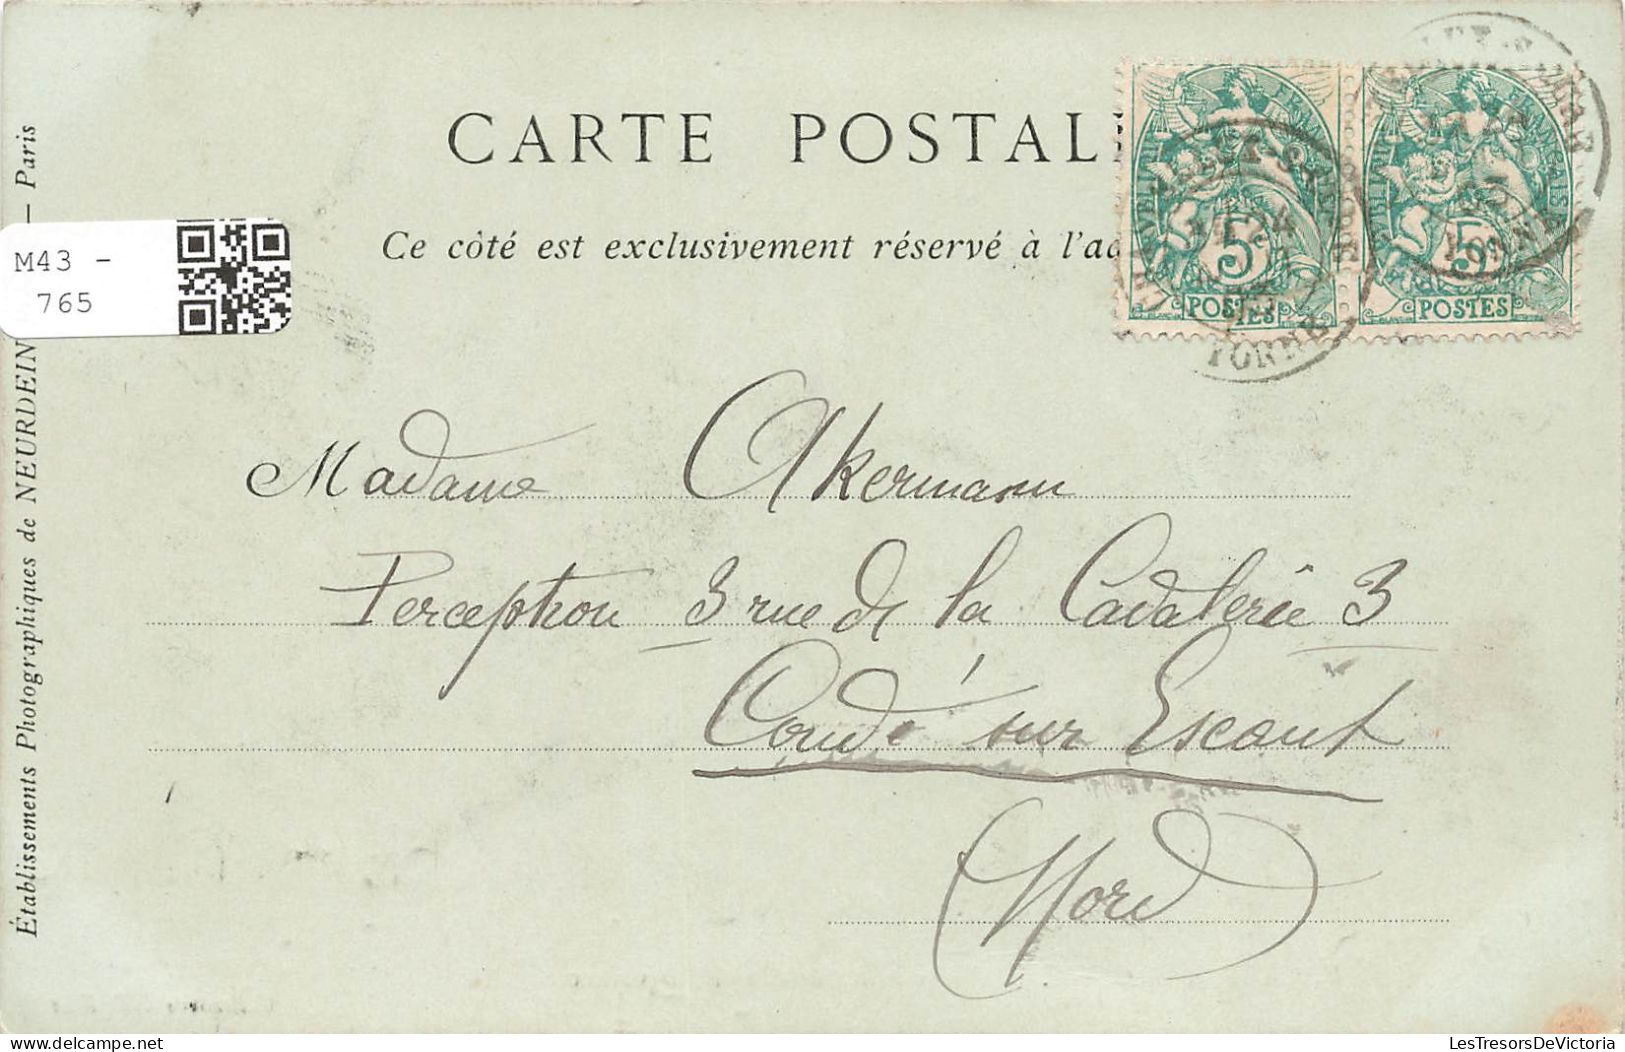 CARTE POSTAL
Ce côté est exclusivement réservé à l'ad
5c
POSTES
5c
POSTES
YONNE
YONNE
M43 -
765
Établissements Photographiques de NEURDEIN — Paris
Madame Akermann
Perception 3 rue de la Cavalerie 3
Condé sur Escaut
Nord
LesTresorsDeVictoria
delcampe.net